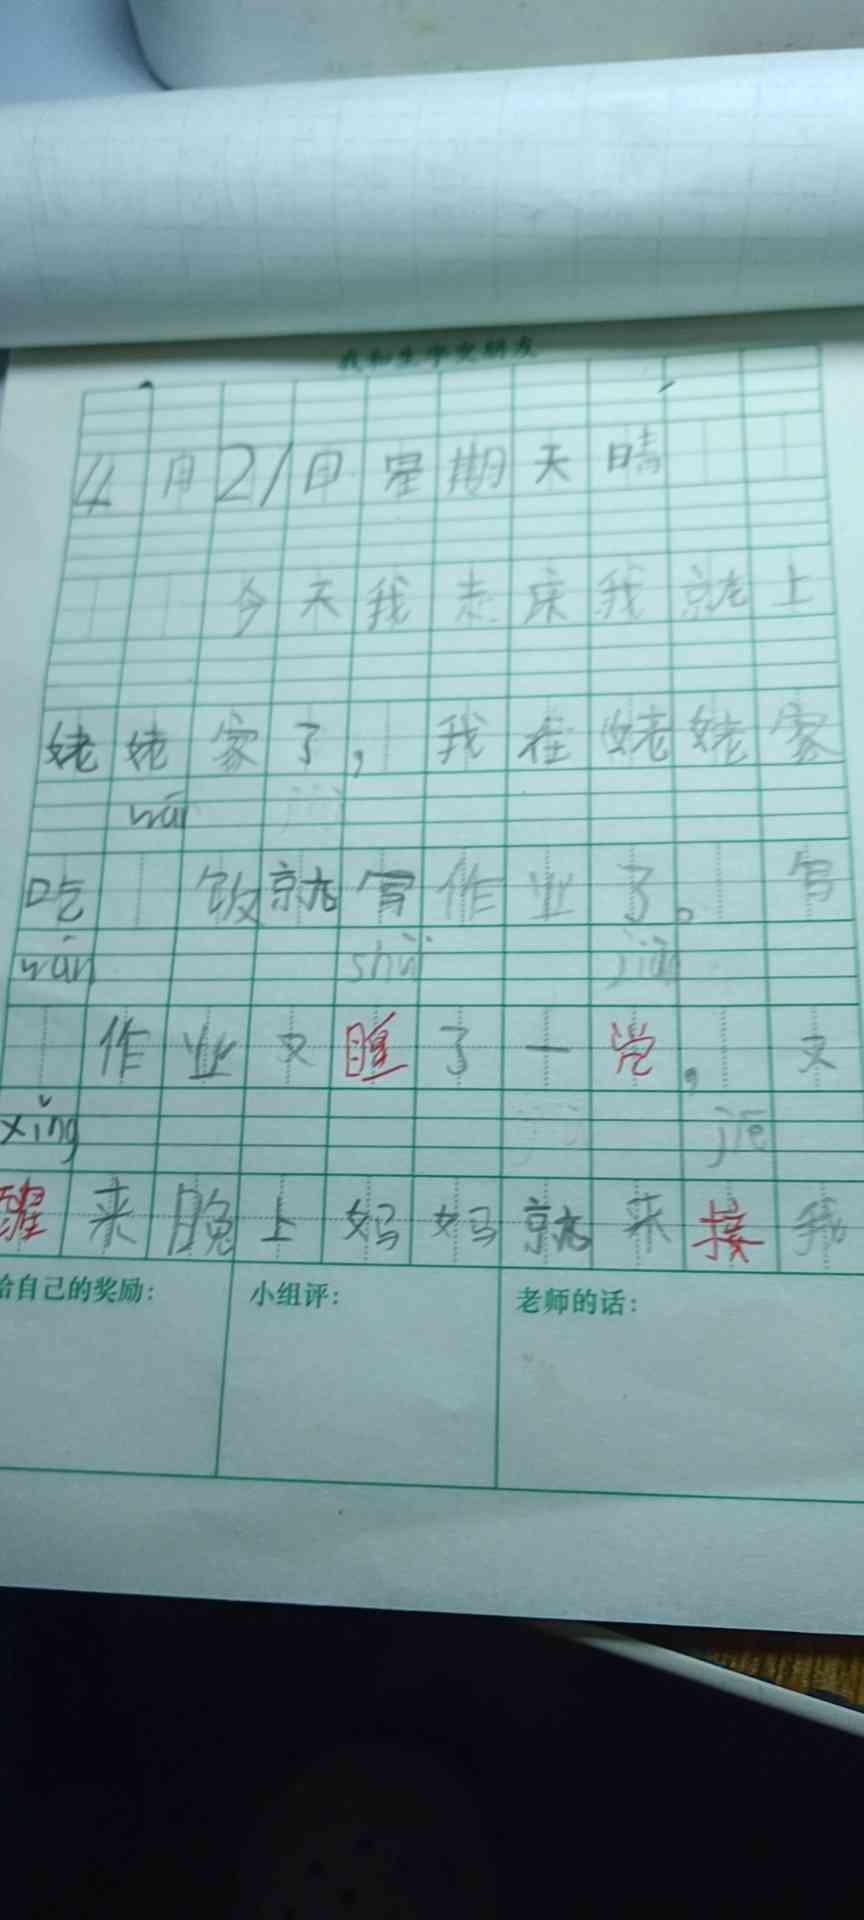 我和生字交朋友
4月21日星期天晴
今天我走床我就上
姥姥家了，我在姥姥家
wán
吃 饭就写作业了。 写
wán shuì jiào
作业又睡了一觉， 又
xǐng jiē
醒来晚上妈妈就来接我
给自己的奖励：
小组评：
老师的话：